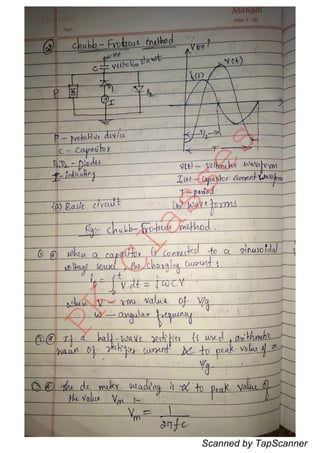 Mangal
Page :
② Chubb-Fortscue method
C
v(t)=Vm sin ωt
P
D1
D2
I
V(t)↑
v(t)
i(t)
T/2
T
P - protective device
C - Capacitor
D1, D2 - Diodes
I - indicating
v(t) - voltmeter waveform
I(t) - Capacitor current waveform
T - period
(a) Basic circuit
(b) waveforms
Fig:- chubb-Fortscue method.
① when a capacitor is connected to a sinusoidal
voltage source, the charging current :
i = C ∫ V dt = jωCV
where V - rms value of v/g
ω - angular frequency
② If a half-wave rectifier is used, arithmetic
mean of rectifier current ∝ to peak value of a
v/g.
③ The dc meter reading is ∝ to peak value of
the value Vm :-
Vm = 1
2πfc
P.K. Classes
Scanned by TapScanner